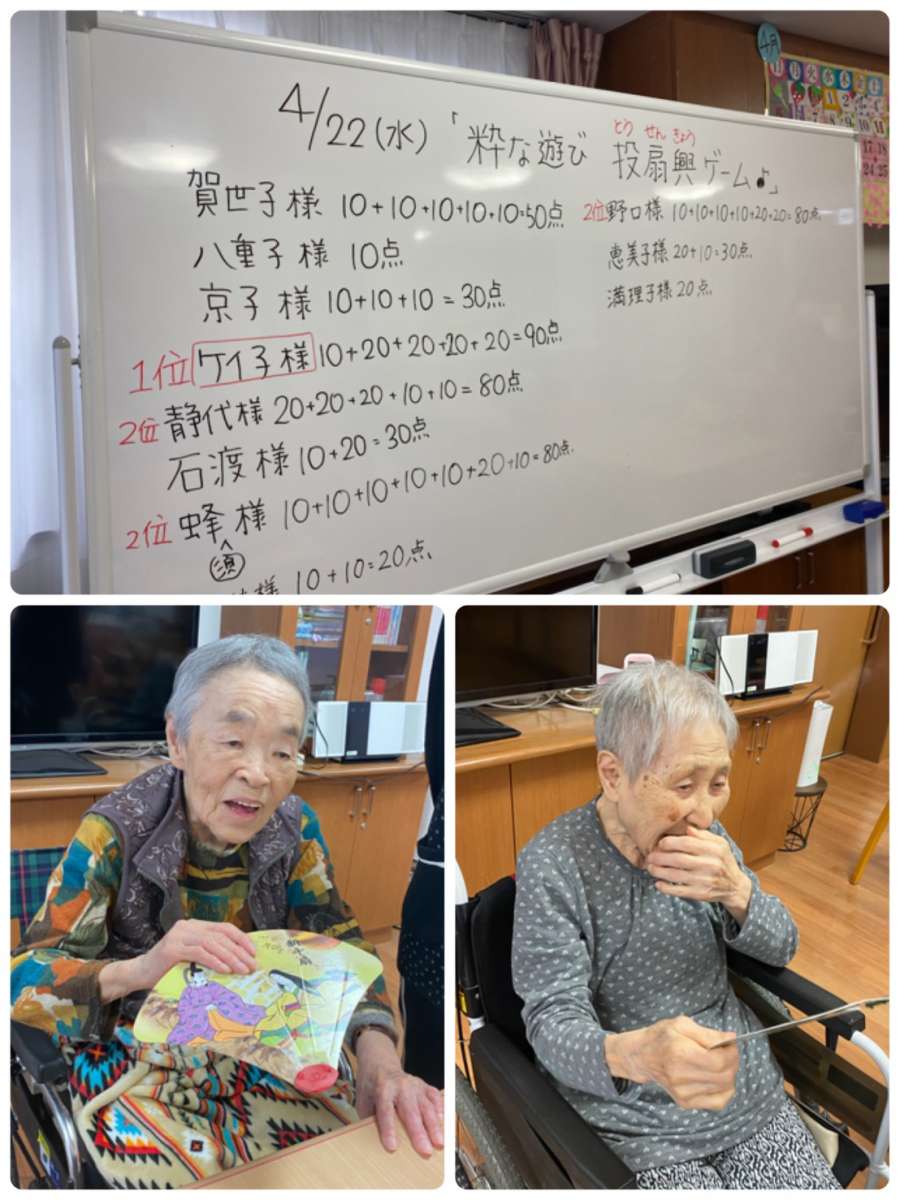 4/22(水)「粋な遊び 投扇興ゲーム♪」
とう せん きょう
賀世子様 10+10+10+10+10=50点
八重子様 10点
京子様 10+10+10=30点
1位 ケイ子様 10+20+20+20+20=90点
2位 静代様 20+20+20+10+10=80点
石渡様 10+20=30点
2位 蜂様 10+10+10+10+10+20+10=80点
須
様 10+10=20点
2位 野口様 10+10+10+10+20+20=80点
恵美子様 20+10=30点
満理子様 20点
4月
日 月 火 水 木 金 土